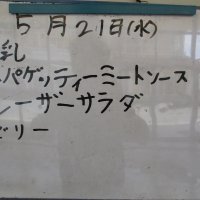 5月21日(水)
乳
パゲッティーミートソース
ーザーサラダ
ゼリー